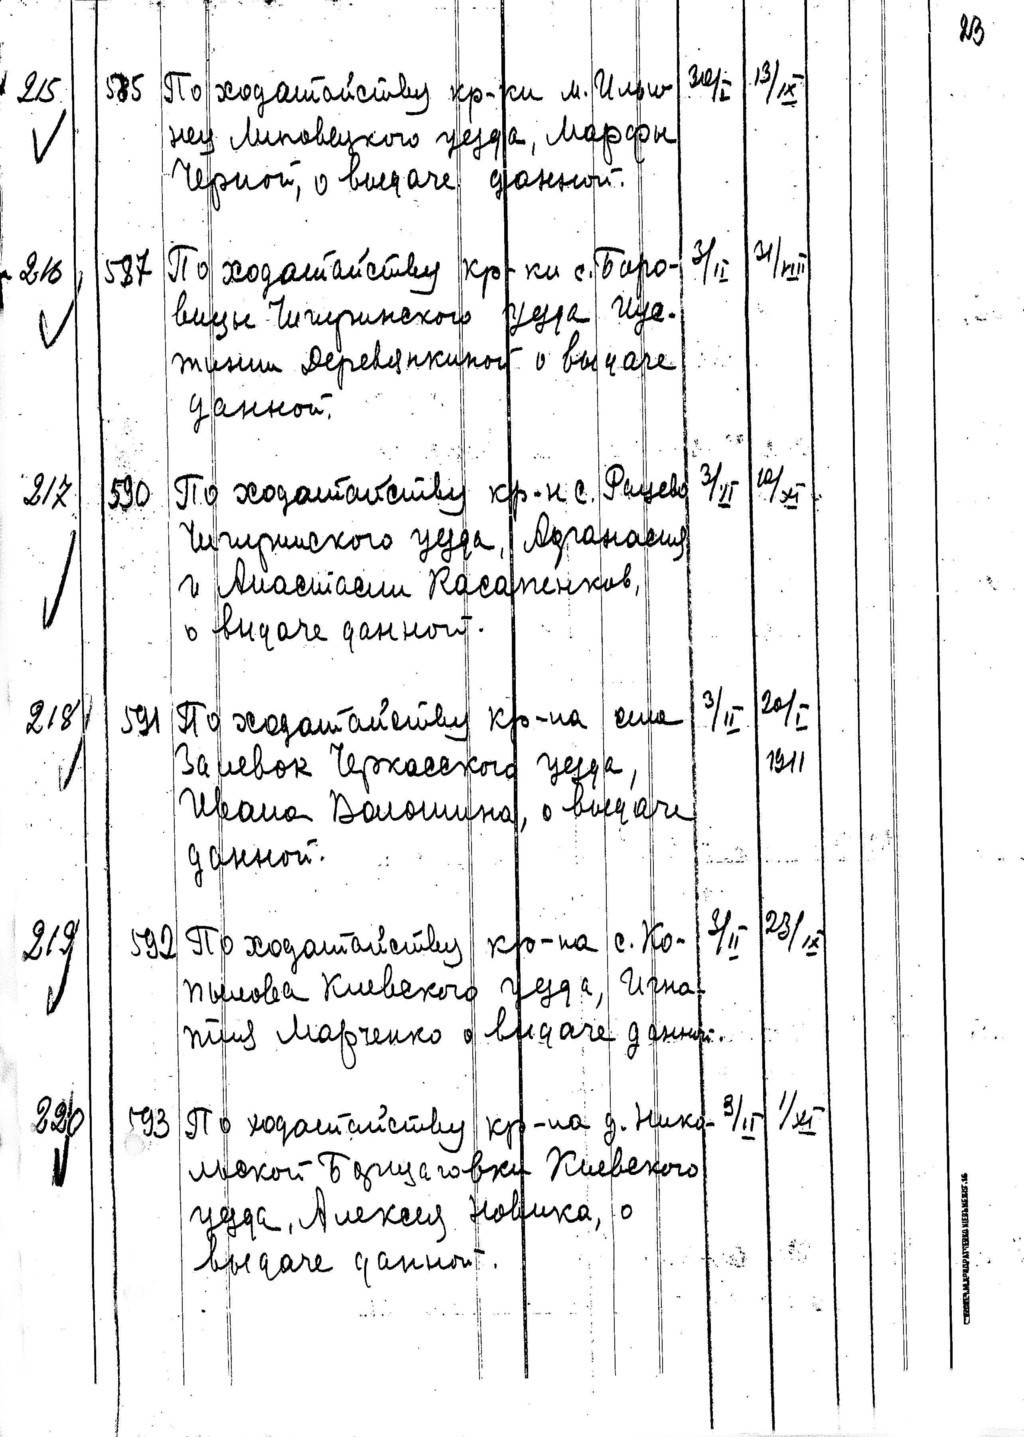 23
215 585 По ходатайству кр-ки м. Ильи- 30/I 13/IX
нец Липовецкого уезда, Марфы
Черной, о выдаче данной.
216 587 По ходатайству кр-ки с. Боро- 3/II 31/VIII
вицы Чигиринского уезда
Деревянкиной о выдаче
данной.
217 590 По ходатайству кр-н с. Рацево 3/II 10/XI
Чигиринского уезда, Афанасия
и Анастасии Касаженков,
о выдаче данной.
218 591 По ходатайству кр-на села 3/II 20/I
Залевок Черкасского уезда, 1911
Ивана Волошина, о выдаче
данной.
219 592 По ходатайству кр-на с. Ко- 3/II 23/IX
пылова Киевского уезда, Игна-
тия Марченко о выдаче данной.
220 593 По ходатайству кр-на д. Нико- 3/II 1/XI
льской Борщаговки Киевского
уезда, Алексея Новика, о
выдаче данной.